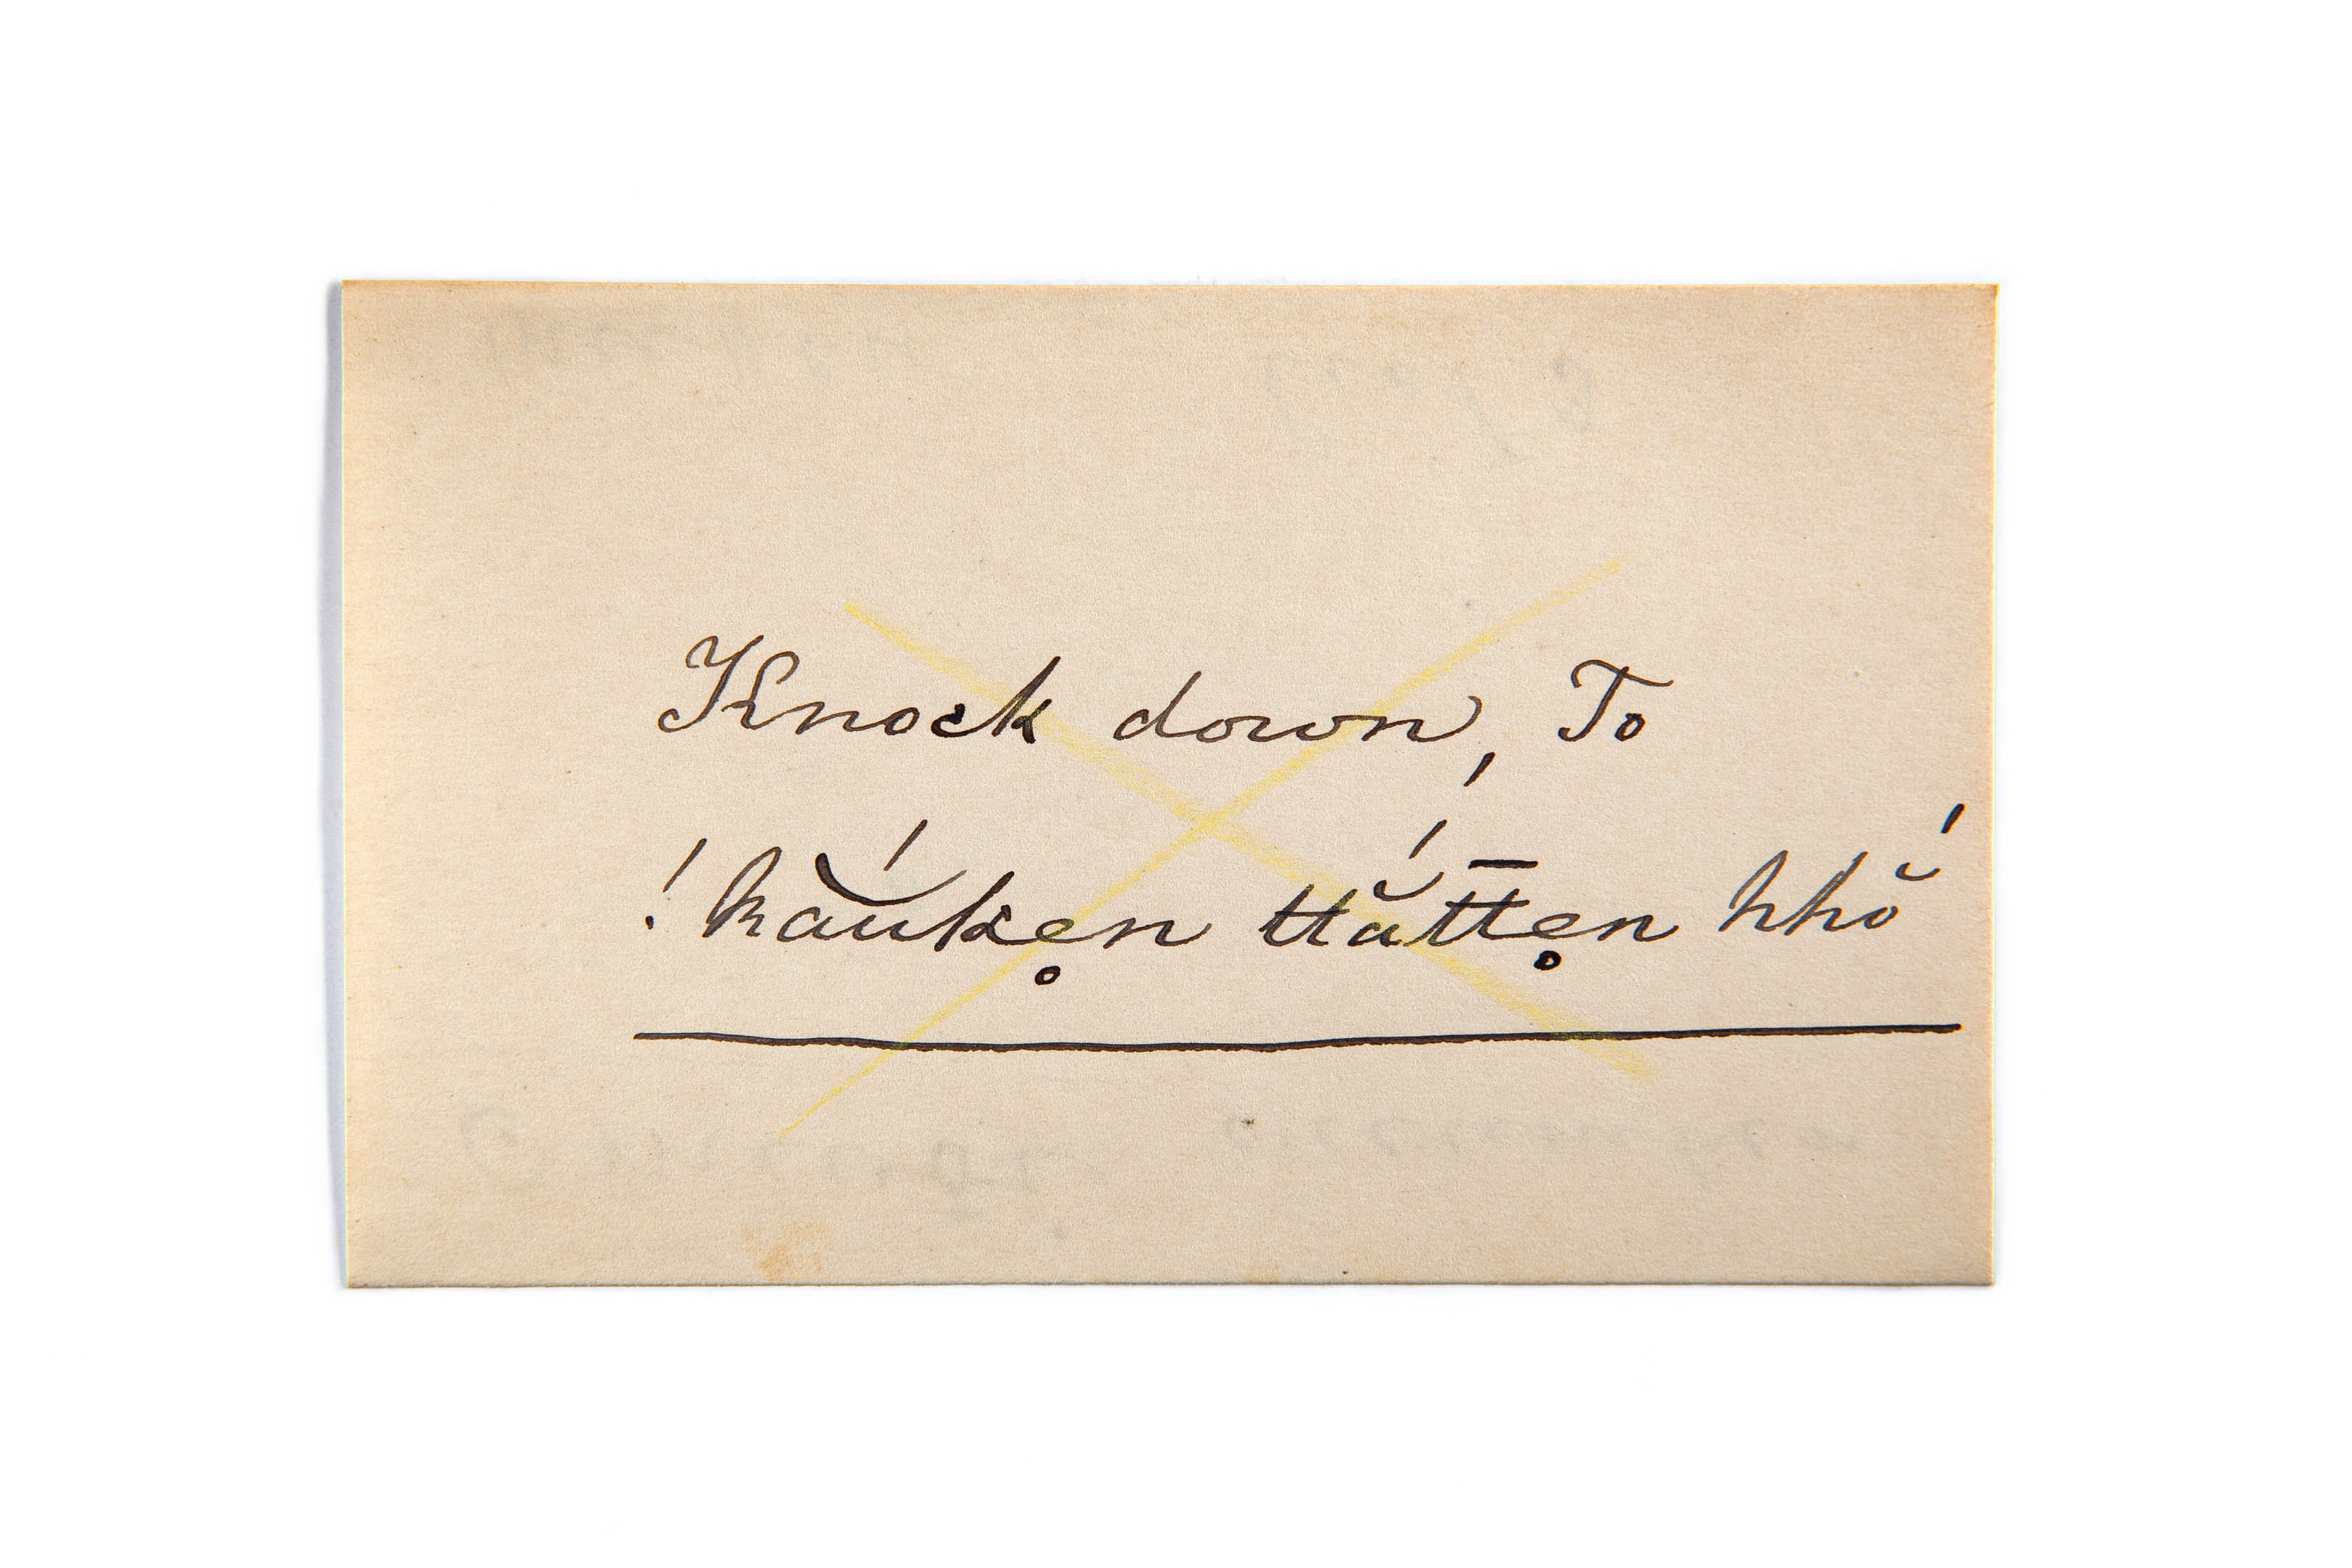 Knock down, To
! kắu̯ken̥ ttắt̄ten̥ hhŏ́